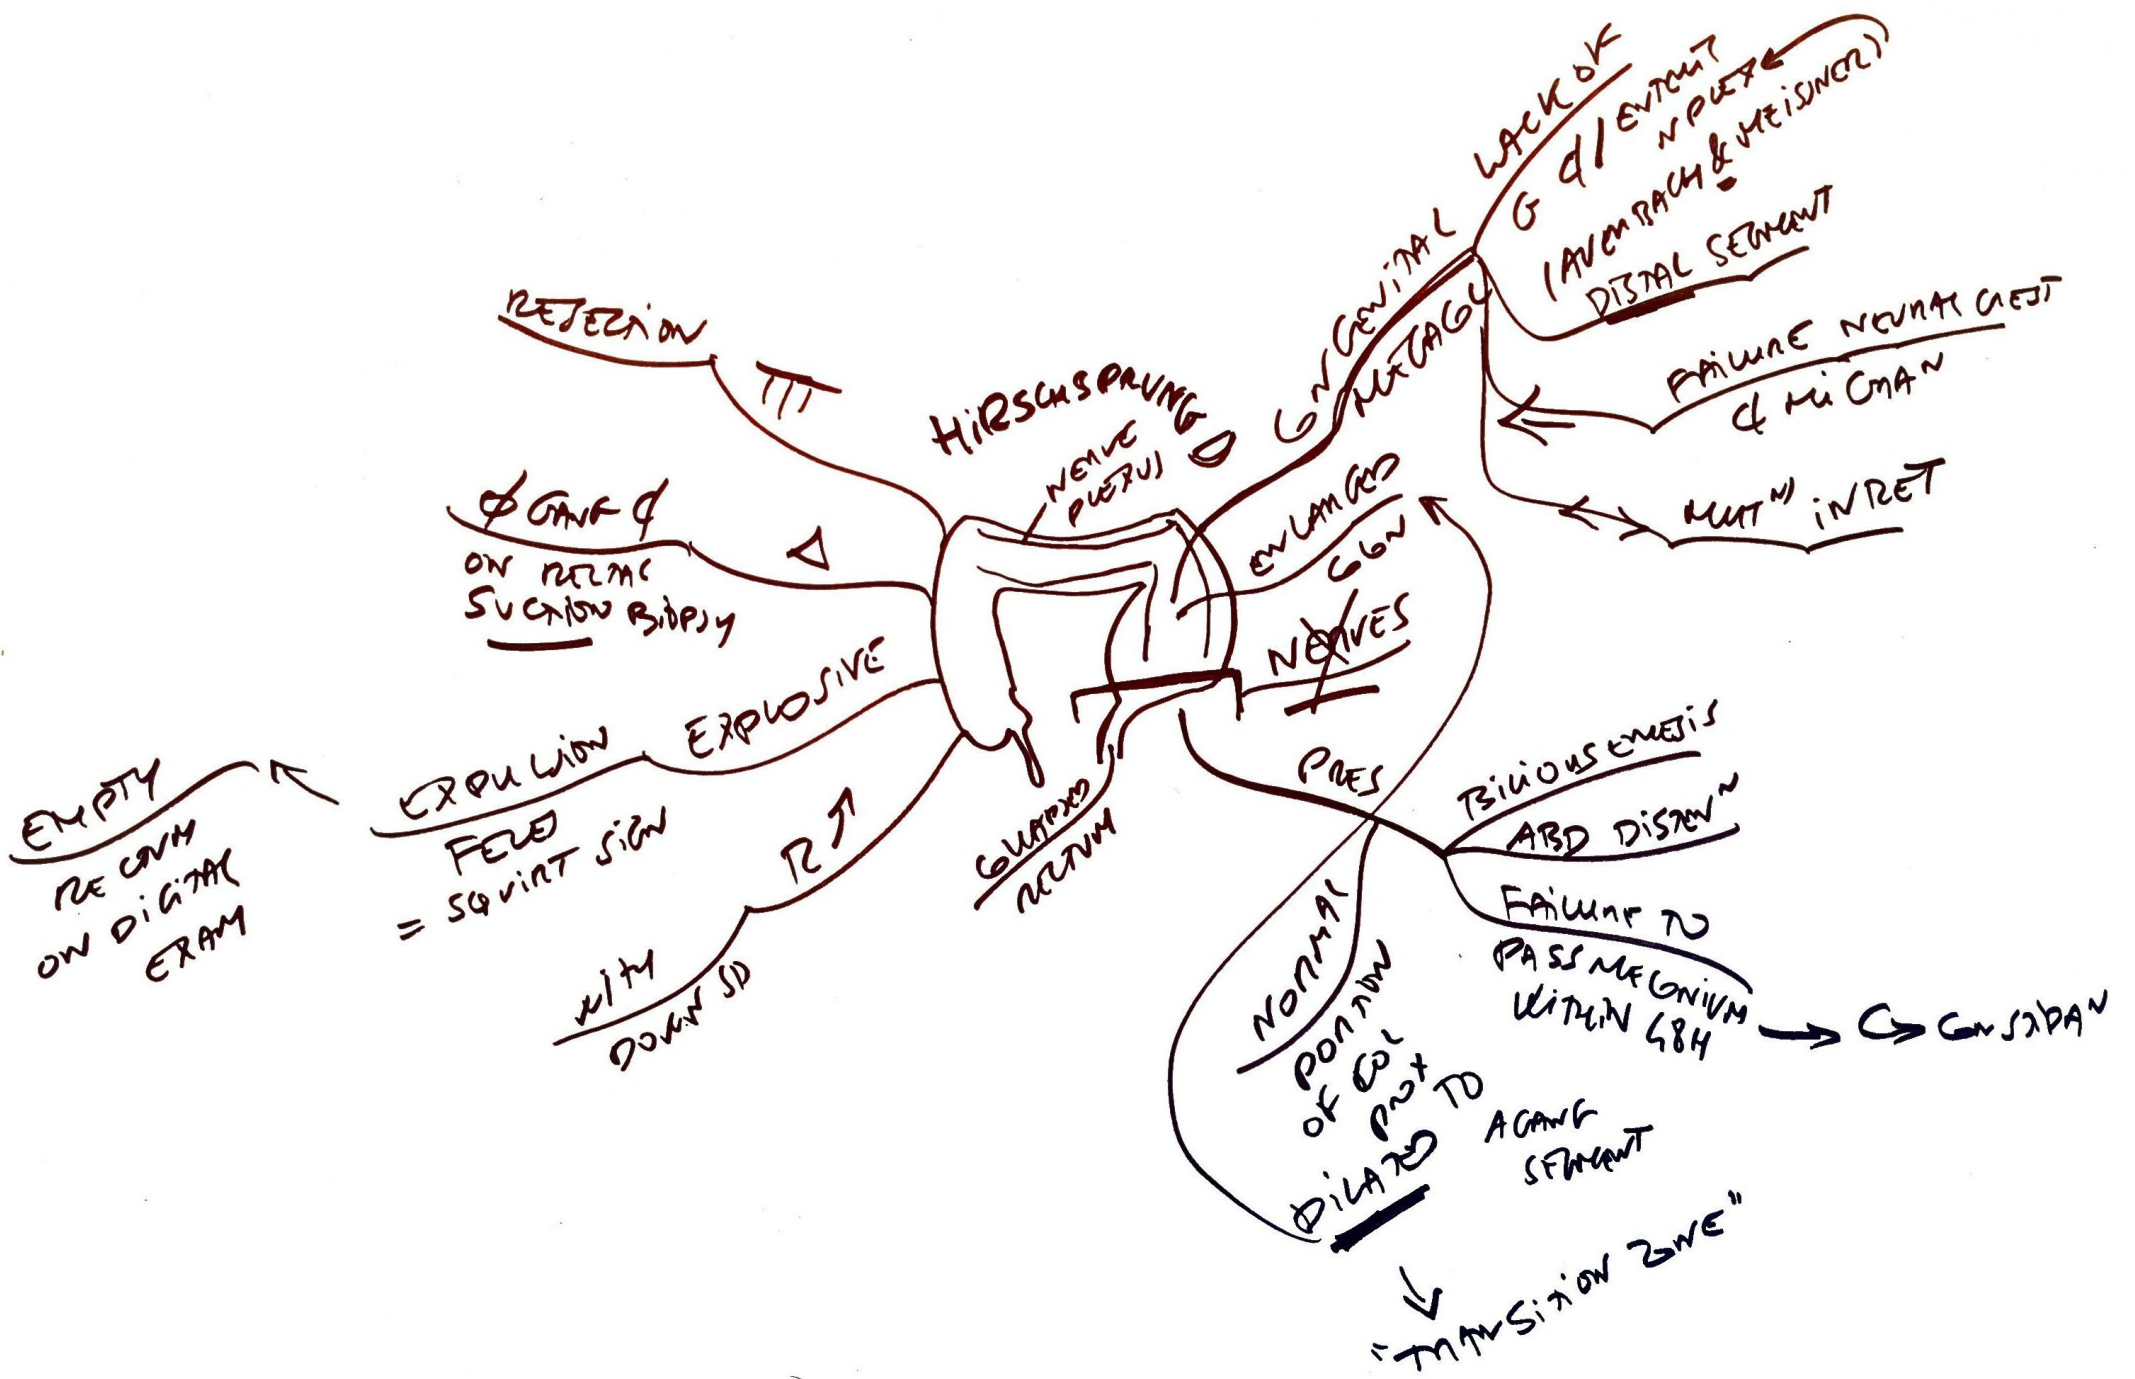 HIRSCHSPRUNG D
NERVE
PLEXUS
CONGENITAL
MEGACOL
LACK OF
G ¢/ ENTERIC
N PLEX
(AUERBACH & MEISSNER)
DISTAL SEGMENT
FAILURE NEURAL CREST
¢ MIGRAN
MUTN IN RET
ENLARGED
COLN
NERVES
PRES
BILIOUS EMESIS
ABD DISTENN
FAILURE TO
PASS MECONIUM
WITHIN 48H → C → CONSTIPAN
NORMAL
PORTION
OF COL
PROX TO
AGANG
SEGMENT
DILATED
"TRANSITION ZONE"
COLLAPSED
RECTUM
R↑
WITH
DOWN SD
EXPLOSIVE
EXPULSION
FECES
= SQUIRT SIGN
EMPTY
RECTUM
ON DIGITAL
EXAM
Δ
∅ GANG ¢
ON RECTAL
SUCTION BIOPSY
RESECTION